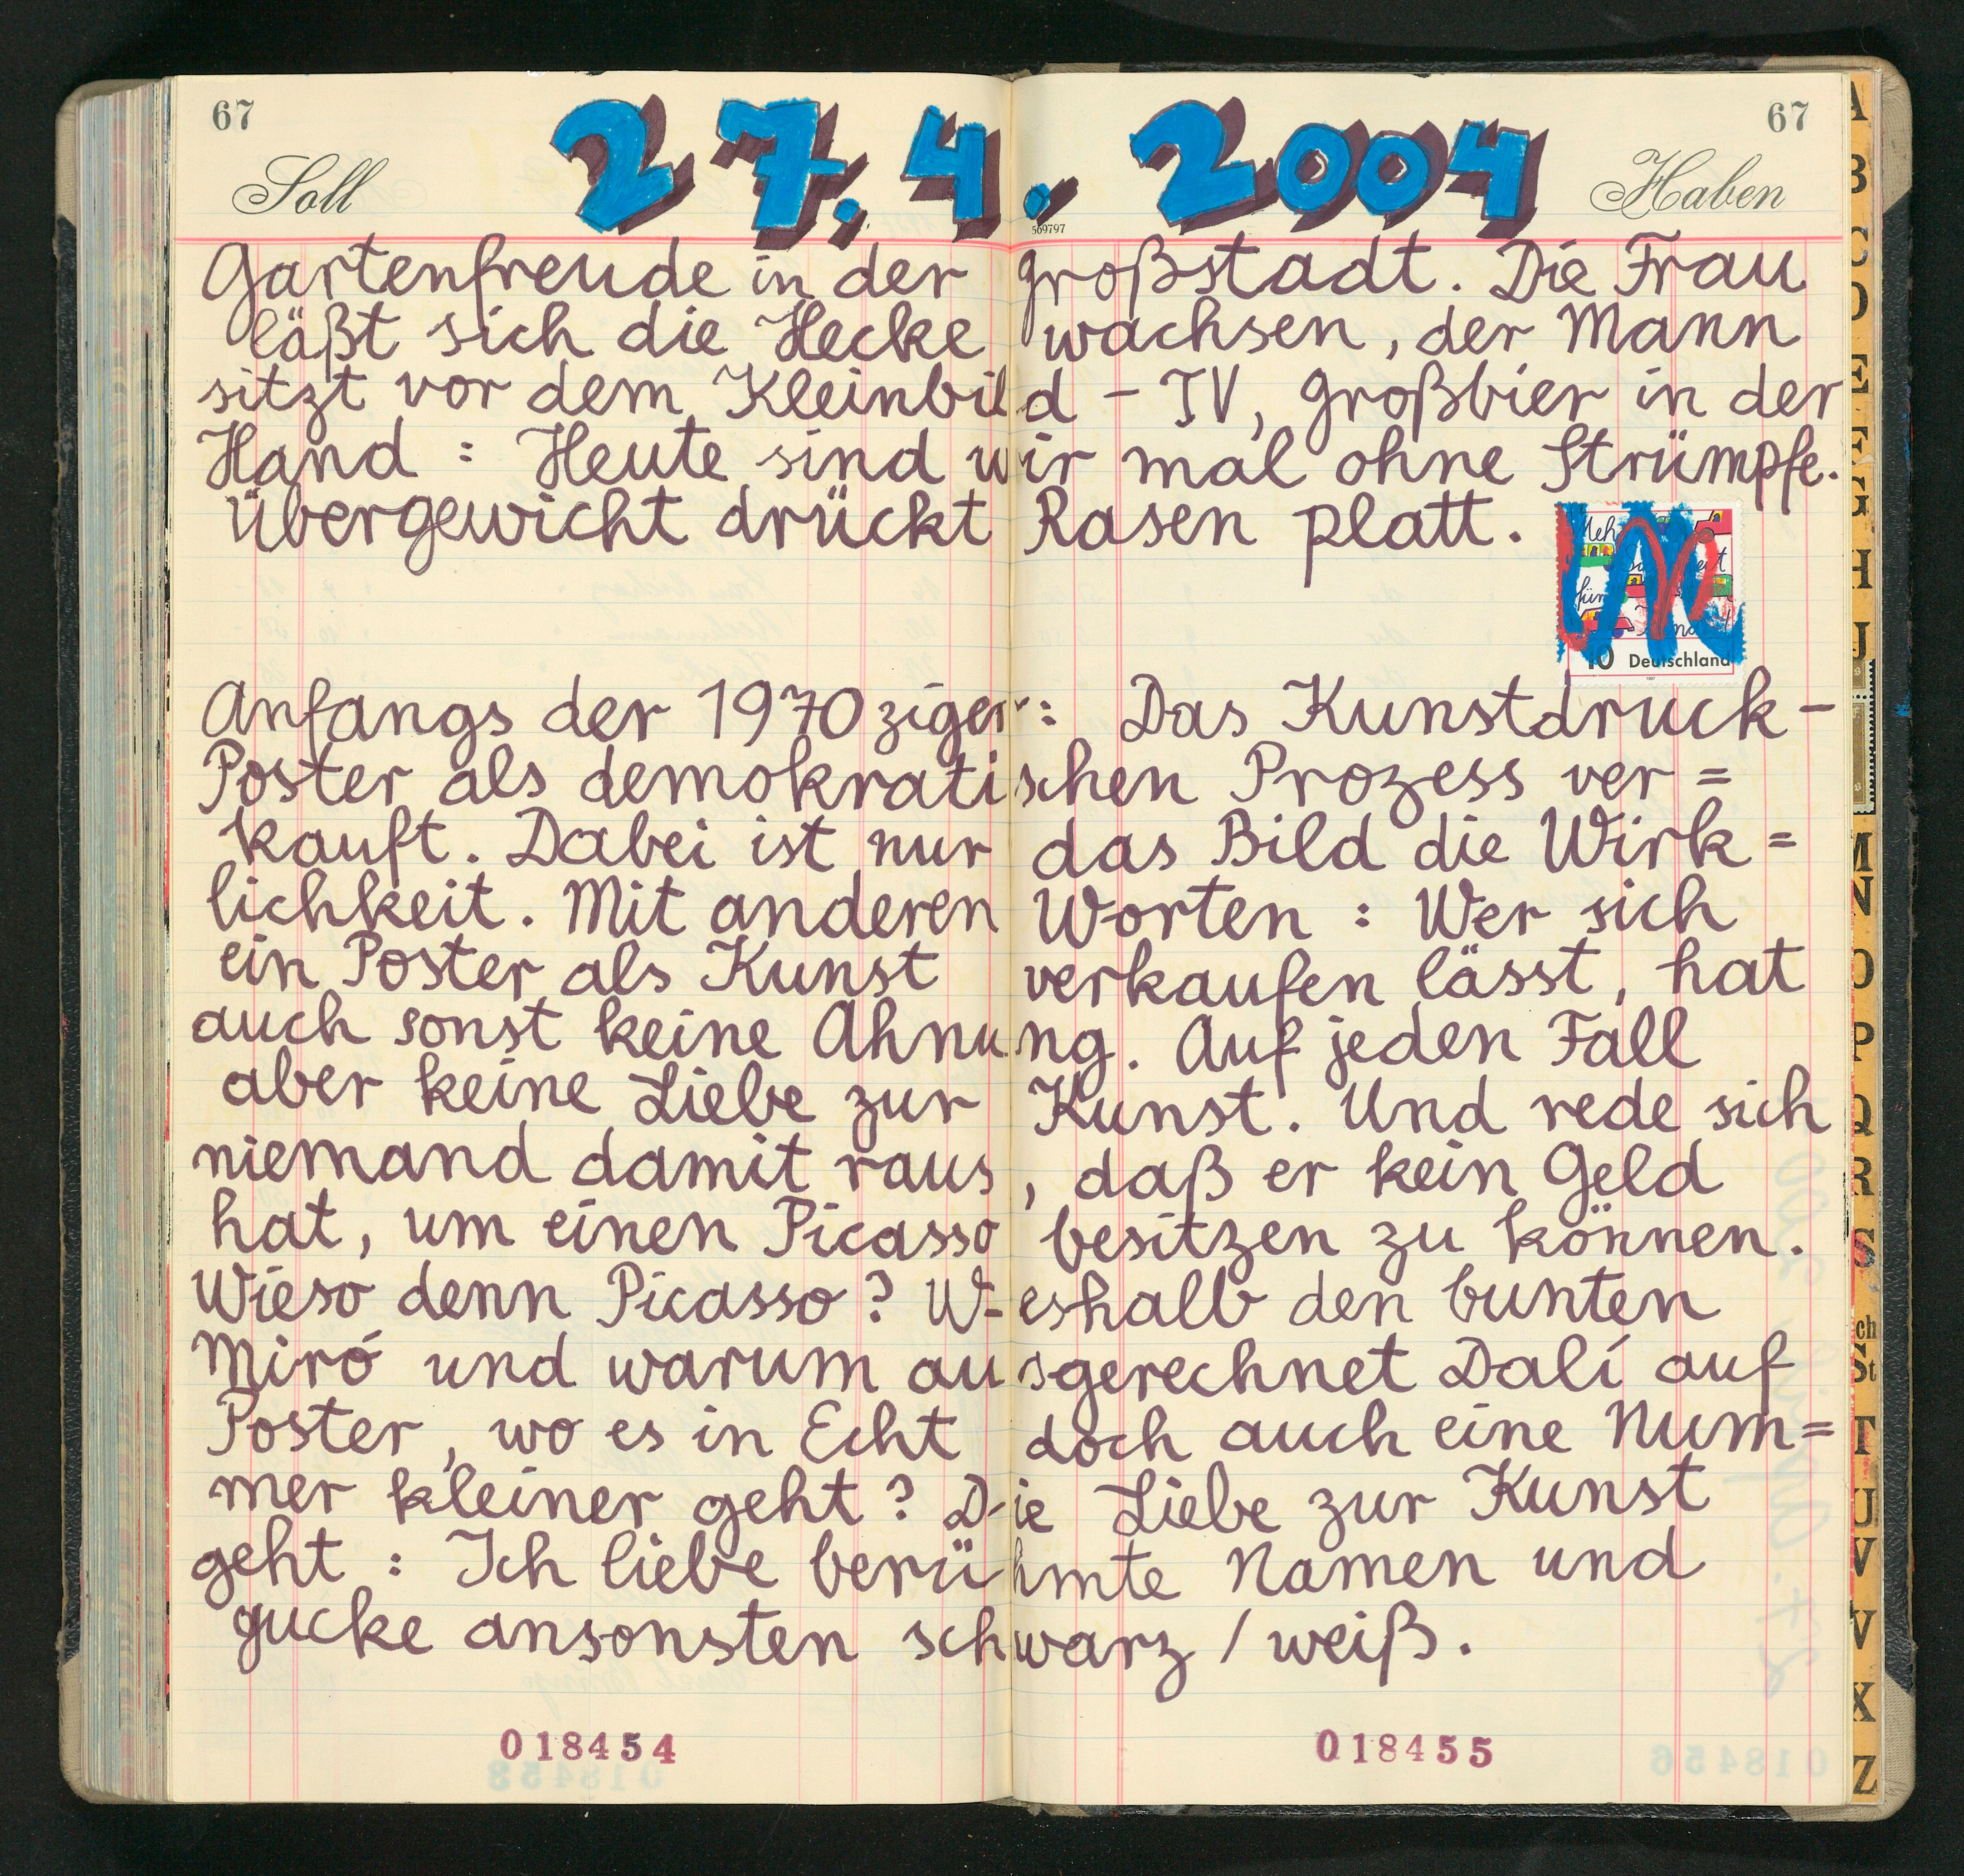 67 67
27.4.2004
Soll Haben
569797
Gartenfreude in der Großstadt. Die Frau
läßt sich die Hecke wachsen, der Mann
sitzt vor dem Kleinbild - TV, Großbier in der
Hand : Heute sind wir mal ohne Strümpfe.
Übergewicht drückt Rasen platt.
für
10 Deutschland
Anfangs der 1970ziger : Das Kunstdruck-
Poster als demokratischen Prozess ver=
kauft. Dabei ist nur das Bild die Wirk=
lichkeit. Mit anderen Worten : Wer sich
ein Poster als Kunst verkaufen lässt, hat
auch sonst keine Ahnung. Auf jeden Fall
aber keine Liebe zur Kunst. Und rede sich
niemand damit raus, daß er kein Geld
hat, um einen Picasso besitzen zu können.
Wieso denn Picasso? Weshalb den bunten
Miró und warum ausgerechnet Dalí auf
Poster, wo es in Echt doch auch eine Num=
mer kleiner geht? Die Liebe zur Kunst
geht : Ich liebe berühmte Namen und
gucke ansonsten schwarz / weiß.
018454 018455
A
B
C
D
E
F
G
H
J
M
N
O
P
Q
R
S
Sch
St
T
U
V
X
Z